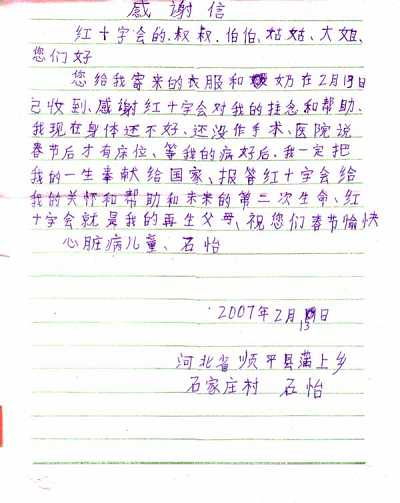 感谢信
红十字会的.叔叔.伯伯.姑姑、大姐、
您们好
您给我寄来的衣服和奶在2月13日
已收到、感谢红十字会对我的挂念和帮助、
我现在身体还不好、还没作手术、医院说
春节后才有床位、等我的病好后.我一定把
我的一生奉献给国家、报答红十字会给
我的关怀和帮助和未来的第二次生命、红
十字会就是我的再生父母、祝您们春节愉快
心脏病儿童、石怡
2007年2月13日
河北省顺平县蒲上乡
石家庄村 石怡